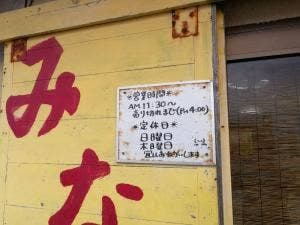 みな
*営業時間*
AM 11:30～
売り切れまで(Pm4:00)
*定休日*
日曜日
木曜日
宜しくお願いします